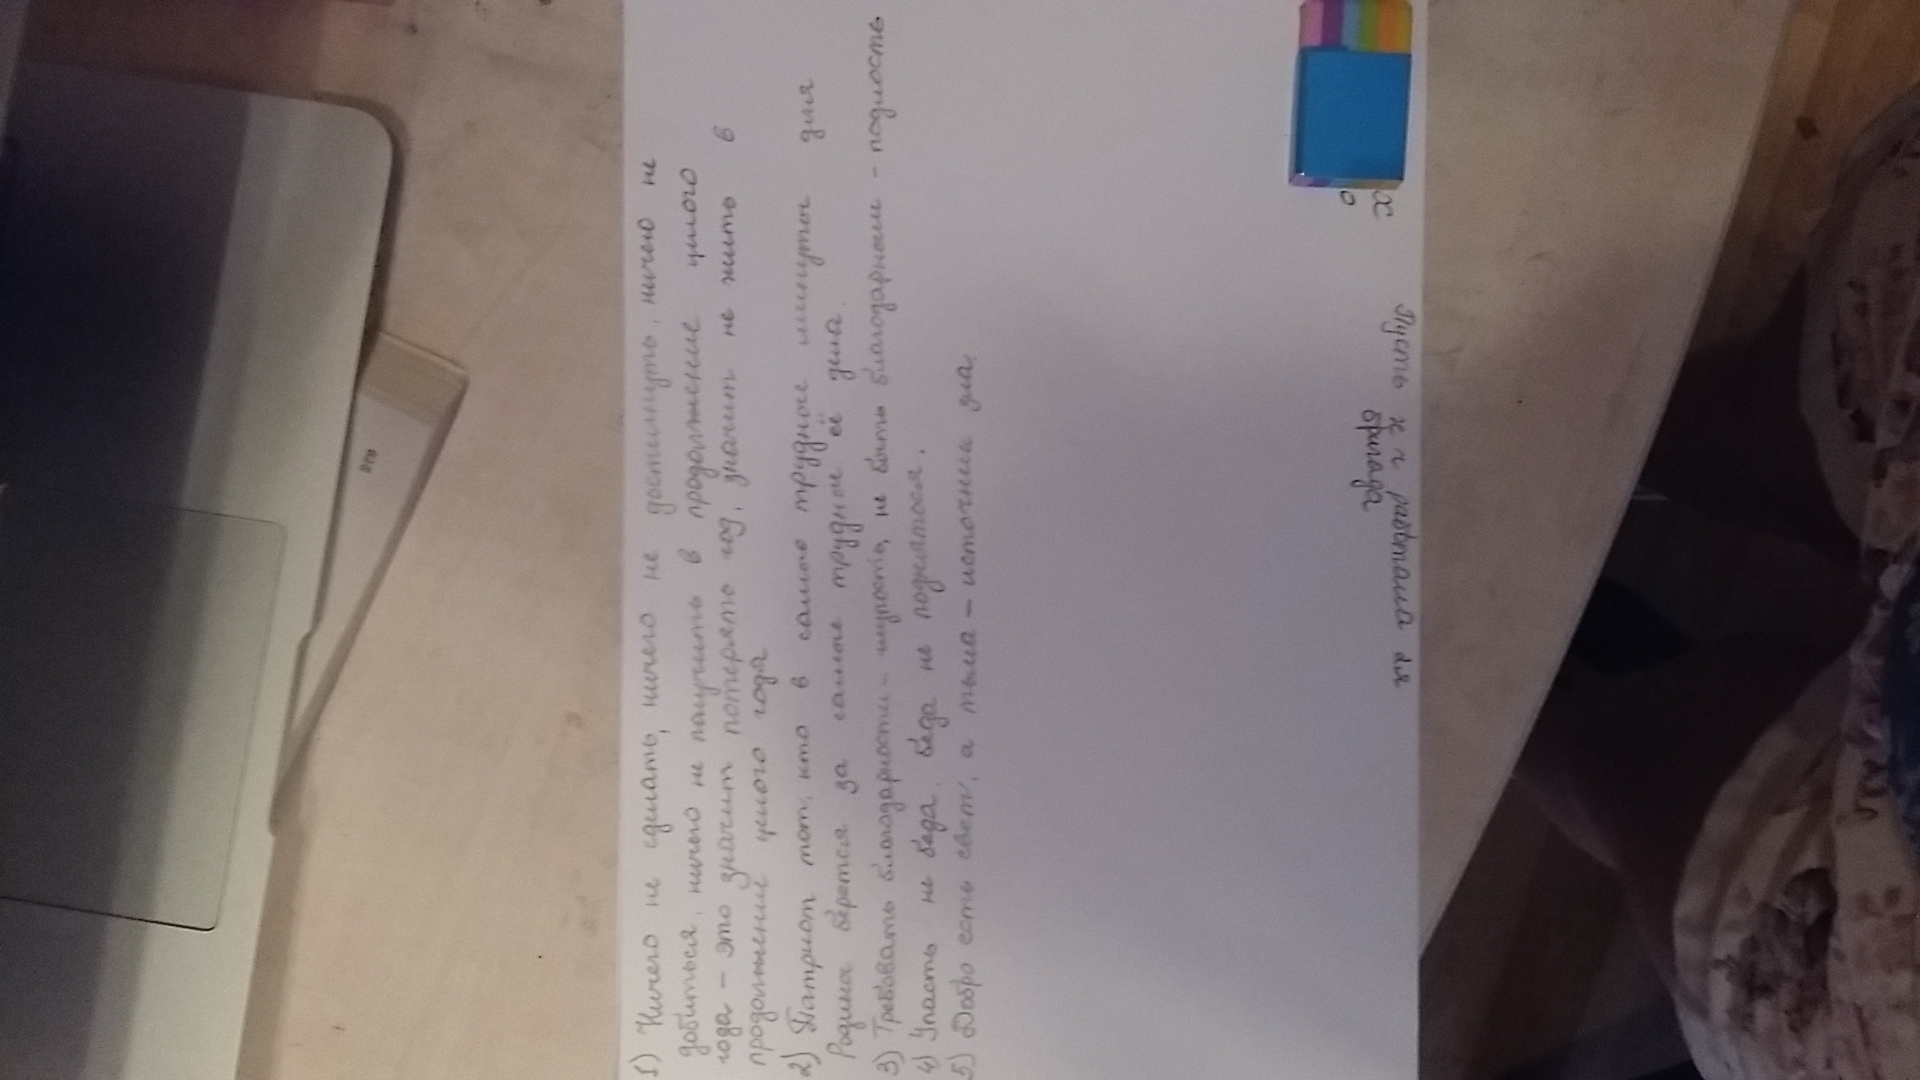 1) Ничего не сделать, ничего не достигнуть, ничего не
добиться, ничего не получить в продолжение целого
года - это значит потерять год, значит не жить в
продолжение целого года
2) Патриот тот, кто в самые трудные минуты для
Родины берется за самые трудные её дела.
3) Требовать благодарности - глупость, не быть благодарным - подлость
4) Упасть не беда, беда не подняться.
5) Добро есть свет, а тьма - источник зла,
x
0
Пусть
бригада